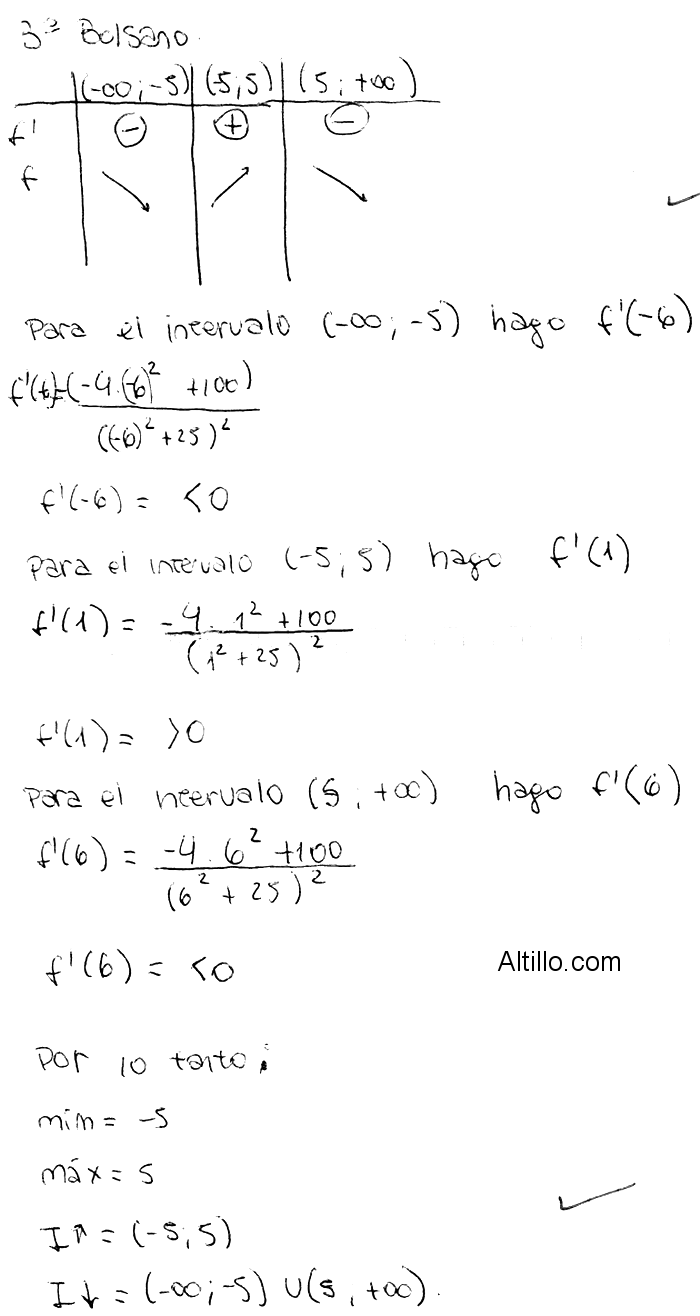 3º Bolsano.
(-∞; -5) (-5; 5) (5; +∞)
f' - + -
f ↘ ↗ ↘
Para el intervalo (-∞; -5) hago f'(-6)
f'(-6) = (-4.(-6)² +100) / ((-6)² + 25)²
f'(-6) = <0
Para el intervalo (-5; 5) hago f'(1)
f'(1) = -4 . 1² +100 / (1² + 25)²
f'(1) = >0
Para el intervalo (5; +∞) hago f'(6)
f'(6) = -4 . 6² +100 / (6² + 25)²
f'(6) = <0
Altillo.com
Por lo tanto:
mín = -5
máx = 5
I↑ = (-5; 5)
I↓ = (-∞; -5) U (5, +∞).